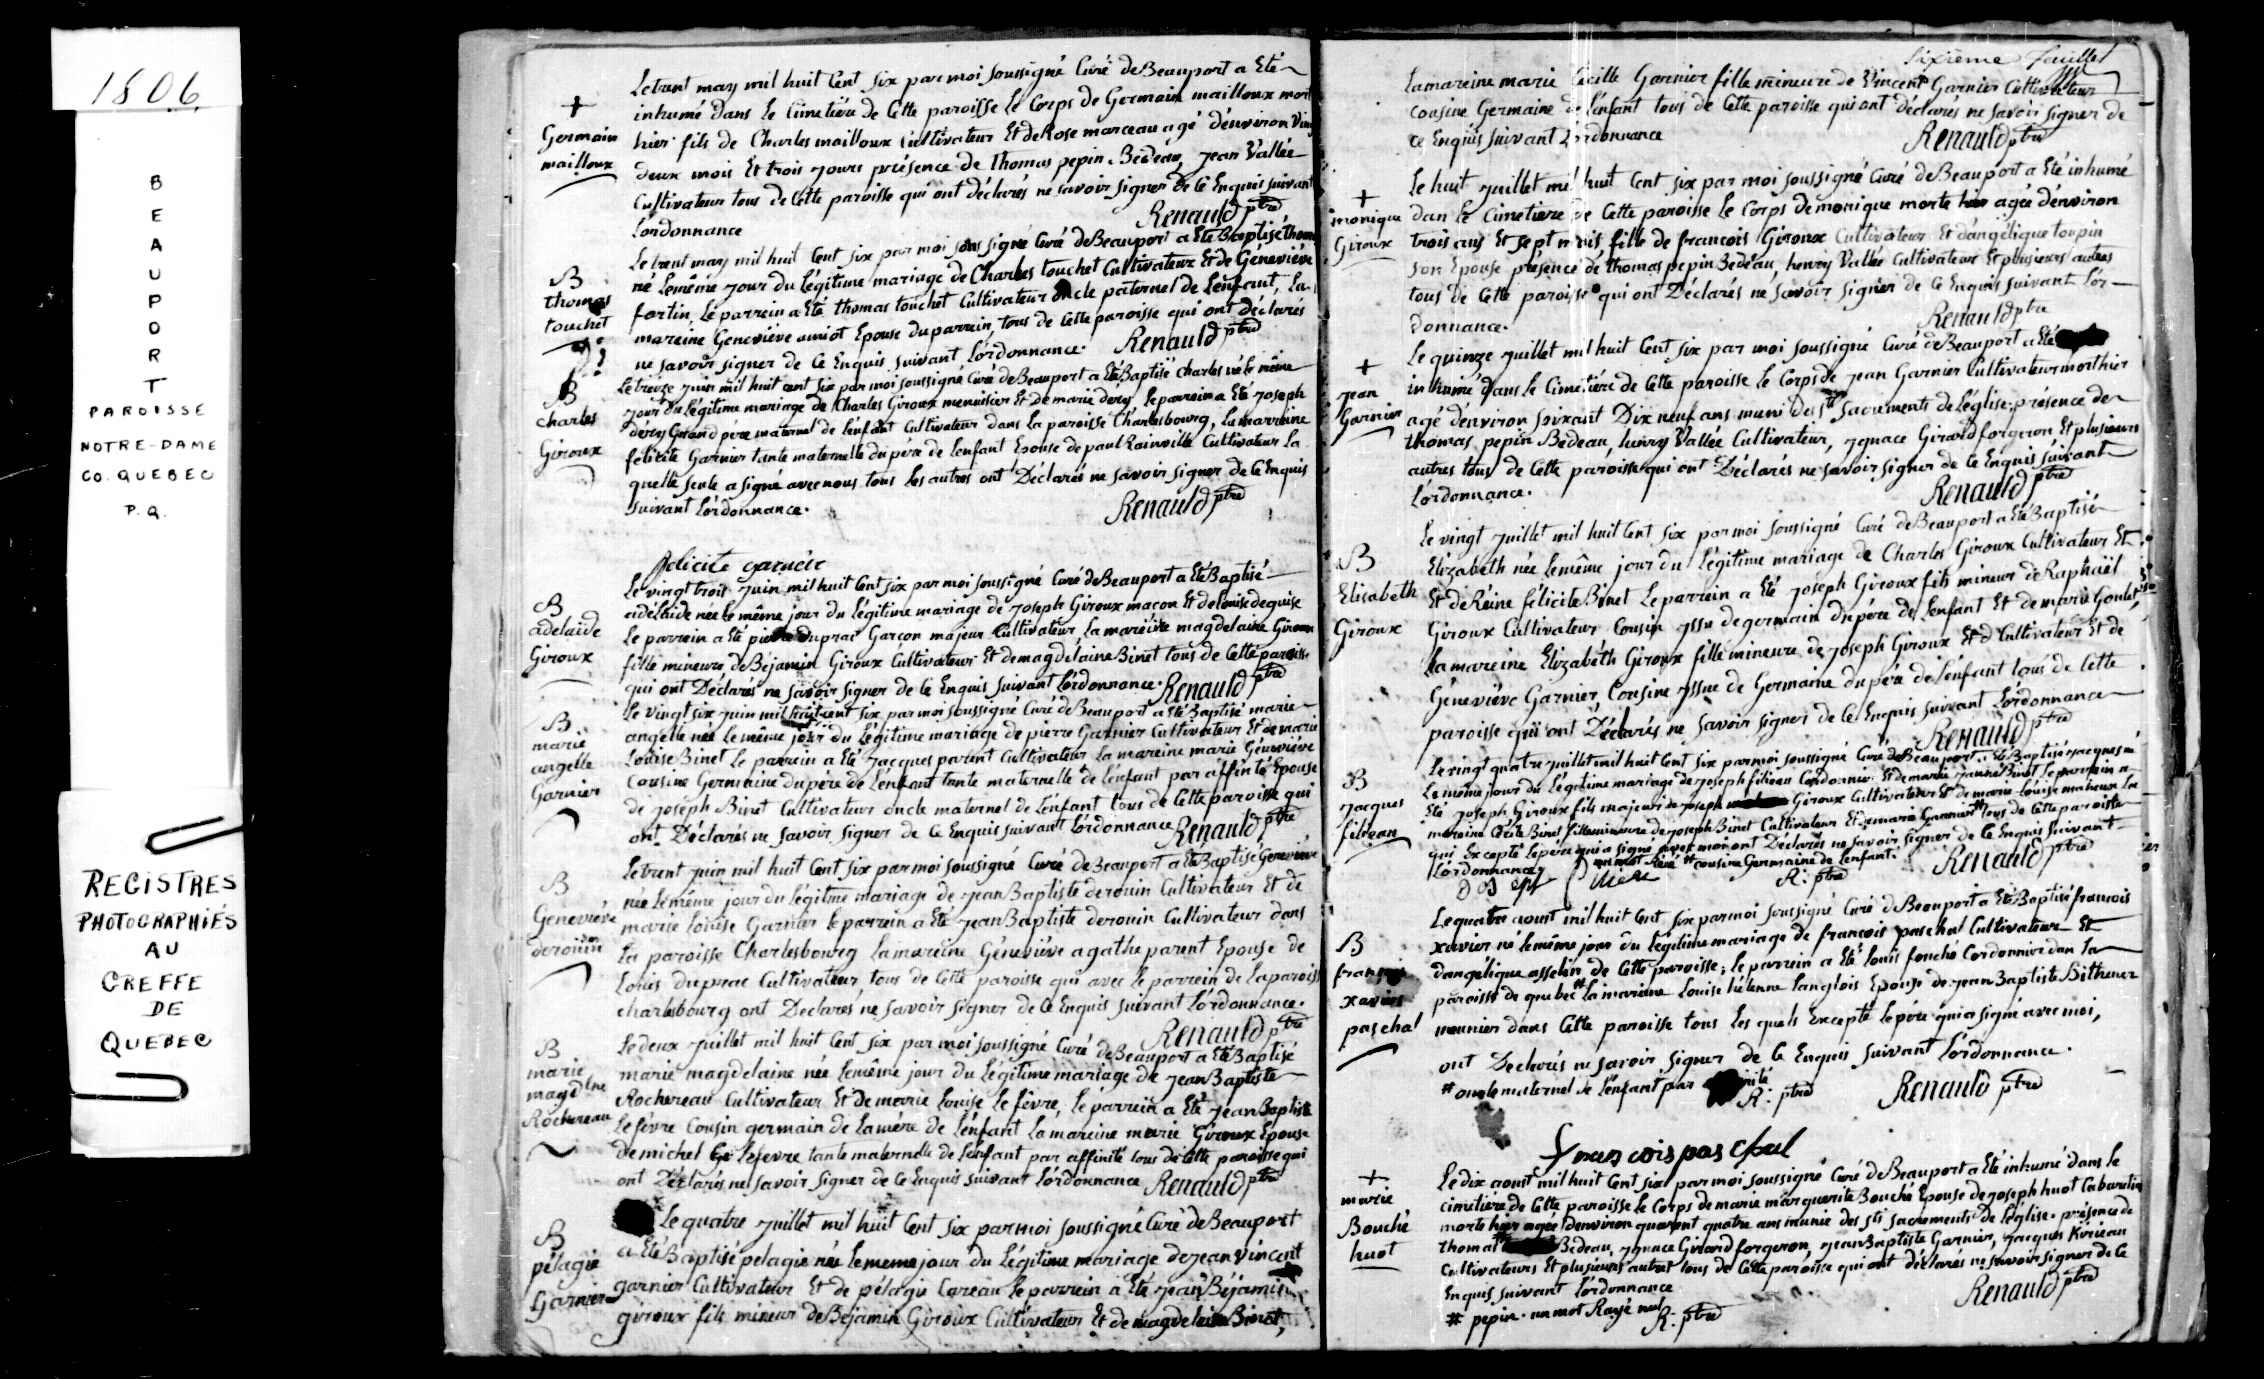 1806
BEAUPORT
PAROISSE
NOTRE-DAME
CO. QUEBEC
P.Q.
REGISTRES
PHOTOGRAPHIÉS
AU
GREFFE
DE
QUEBEC
+
Germain
mailloux
Le trent may mil huit Cent six par moi soussigné Curé de Beauport a Eté
inhumé dans le Cimetiére de Cette paroisse le Corps de Germain mailloux mort
hier fils de Charles mailloux Cultivateur Et de Rose marceau agé d'énviron Vin
deux mois Et trois jours présence de Thomas pepin Bédeau, Jean Vallée
Cultivateur tous de Cette paroisse qui ont déclarés ne savoir signer de Ce Enquis suivant
L'ordonnance
Renauld ptre
B
thomas
touchet
Le trent may mil huit Cent six par moi soussigné Curé de Beauport a Eté Baptisé thom
né lemême jour du Légitime mariage de Charles touchet Cultivateur Et de Géneviéve
fortin, Le parrein a Eté thomas touchet Cultivateur oncle paternel de L'enfant, La
mareine Geneviéve amiot Epouse du parrein, tous de Cette paroisse qui ont déclarés
ne savoir signer de Ce Enquis suivant L'ordonnance. Renauld ptre
B
charles
Giroux
Le treize juin mil huit cent six par moi soussigné Curé de Beauport a Eté Baptisé charles né le même
jour du légitime mariage de Charles Giroux menuisier Et de marie dery le parrein a Eté Joseph
déry Grand pére maternel de l'enfant Cultivateur dans la paroisse Charlesbourg, La marreine
félicité Garnier tante maternelle du pére de lenfant Epouse de paul Rainville Cultivateur la
quelle seule a signé avec nous, tous les autres ont Déclarés ne savoir signer de Ce Enquis
suivant L'ordonnance.
Renauld ptre
felicite garnier
B
adelaïde
Giroux
Le vingt trois juin mil huit Cent six par moi soussigné Curé de Beauport a Eté Baptisé
adélaïde née le même jour du Légitime mariage de joseph Giroux macon Et de louise dequise
Le parrein a Eté pierre duprac Garcon majeur Cultivateur, La mareine magdelaine Giroux
fille mineure de Béjamin Giroux Cultivateur Et de magdelaine Binet tous de Cette paroisse
qui ont Déclarés ne savoir signer de Ce Enquis suivant L'ordonnance. Renauld ptre
B
marie
angelle
Garnier
Le vingt six juin mil huit cent six par moi soussigné Curé de Beauport a Eté Baptisé marie
angelle née Le même jour du Légitime mariage de pierre Garnier Cultivateur Et de marie
Louise Binet Le parrein a Eté jacques parent Cultivateur La mareine marie Géneviéve
Cousine Germaine du pére de L'enfant tante maternelle de L'enfant par affinité Epouse
de joseph Binet Cultivateur oncle maternel de L'enfant tous de Cette paroisse qui
ont Déclarés ne savoir signer de Ce Enquis suivant L'ordonnance Renauld ptre
B
Geneviéve
derouin
Le trent juin mil huit Cent six par moi soussigné Curé de Beauport a Eté Baptisé Géneviéve
née Le même jour du Légitime mariage de jean Baptiste derouin Cultivateur Et de
marie Louise Garnier le parrein a Eté jean Baptiste derouin Cultivateur dans
La paroisse Charlesbourg La mareine Géneviéve agathe parent Epouse de
Louis duprac Cultivateur tous de Cette paroisse qui avec le parrein de La parois
charlesbourg ont Déclarés ne savoir signer de Ce Enquis suivant L'ordonnance.
Renauld ptre
B
marie
magdlne
Rochereau
Le deux juillet mil huit Cent six par moi soussigné Curé de Beauport a Eté Baptisé
marie magdelaine née Lemême jour du Légitime mariage de jean Baptiste
Rochereau Cultivateur Et de marie Louise le févre, Le parrein a Eté jean Baptiste
Lefévre Cousin germain de La mére de L'enfant La mareine marie Giroux Epouse
de michel Lefevre tante maternelle de L'enfant par affinité tous de Cette paroisse qui
ont Déclarés ne savoir signer de Ce Enquis suivant L'ordonnance Renauld ptre
B
pélagie
Garnier
Le quatre juillet mil huit Cent six par moi soussigné Curé de Beauport
a Eté Baptisé pelagie née le meme jour du Légitime mariage de jean vincent
garnier Cultivateur Et de pélagie Careau Le parrein a Eté jean Béjamin
giroux fils mineur de Béjamin Giroux Cultivateur Et de magdelaine Binet,
Sixième feuillet
La mareine marie Cécille Garnier fille mineure de Vincent Garnier Cultivateur
cousine Germaine de l'enfant tous de Cette paroisse qui ont déclarés ne savoir signer de
ce Enquis suivant L'ordonnance
Renauld ptre
+
monique
Giroux
Le huit juillet mil huit Cent six par moi soussigné Curé de Beauport a Eté inhumé
dan le Cimetiere de Cette paroisse Le Corps de monique morte hier agée d'énviron
trois ans Et sept mois, fille de francois Giroux Cultivateur Et d'angélique toupin
son Epouse présence de thomas pepin Bédeau, henry Vallée Cultivateur Et plusieurs autres
tous de Cette paroisse qui ont Déclarés ne savoir signer de Ce Enquis suivant L'or-
donnance.
Renauld ptre
+
jean
Garnier
Le quinze juillet mil huit Cent six par moi soussigné Curé de Beauport a Eté
inhumé dans le Cimetiére de Cette paroisse Le Corps de jean Garnier Cultivateur mort hier
agé d'énviron soixant Dix neuf ans muni des sts sacrements de L'église, présence de
thomas pepin Bédeau, henry Vallée Cultivateur, ignace Girard forgeron Et plusieurs
autres tous de Cette paroisse qui ont Déclarés ne savoir signer de Ce Enquis suivant
L'ordonnance.
Renauld ptre
B
Elisabeth
Giroux
Le vingt juillet mil huit Cent six par moi soussigné Curé de Beauport a Eté Baptisé
Elizabeth née lemême jour du Légitime mariage de Charles Giroux Cultivateur Et
Et de Réine félicite Binet Le parrein a Eté joseph Giroux fils mineur de Raphaël
Giroux Cultivateur Cousin yssu de germain du pére de l'enfant Et de marie Goulet
La mareine Elizabeth Giroux fille mineure de joseph Giroux Cultivateur Et de
Géneviéve Garnier Cousine yssue de Germaine du pére de l'enfant tous de Cette
paroisse qui ont Déclarés ne savoir signer de Ce Enquis suivant L'ordonnance
Renauld ptre
B
jacques
filieau
Le vingt quatre juillet mil huit Cent six par moi soussigné Curé de Beauport a Eté Baptisé jacques né
Le même jour du Légitime mariage de joseph filieau Cordonnier Et de marie janne Binet le parrein a
Eté joseph Giroux fils majeur de joseph Giroux Cultivateur Et de marie Louise maheux La
mareine Cécile Binet fille mineure de joseph Binet Cultivateur Et de marie tous de Cette paroisse
qui Excepté le pére qui a signé avec moi ont Déclarés ne savoir signer de Ce Enquis suivant
L'ordonnance un mot Rayé # cousine Germaine de l'enfant. R: ptre Renauld ptre
B
francois
xavier
paschal
Le quatre aoust mil huit Cent six par moi soussigné Curé de Beauport a Eté Baptisé francois
xavier né le même jour du légitime mariage de francois paschal Cultivateur Et
d'angélique asselin de Cette paroisse; le parrein a Eté Louis fouché Cordonnier dan la
paroisse de quebec # La mareine Louise hélenne langlois Epouse de jean Baptiste Bithener
meunier dans Cette paroisse tous Les quels Excepté le pére qui a signé avec moi,
ont Declarés ne savoir signer de Ce Enquis suivant L'ordonnance.
# oncle maternel de l'enfant par R: ptre Renauld ptre
francois pas chal
+
marie
Bouché
huot
Le dix aoust mil huit Cent six par moi soussigné Curé de Beauport a Eté inhumé dans le
cimetiére de Cette paroisse le Corps de marie marguerite Bouché Epouse de joseph huot Cabaretier
morte hier agée d'énviron quarent quatre ans munie des sts sacrements de L'église. présence de
thomas # Bedeau, ignace Girard forgeron, jean Baptiste Garnier, jacques
Cultivateurs Et plusieurs autres tous de Cette paroisse qui ont déclarés ne savoir signer de Ce
Enquis suivant L'ordonnance
Renauld ptre
# pepin. un mot Rayé nul R. ptre